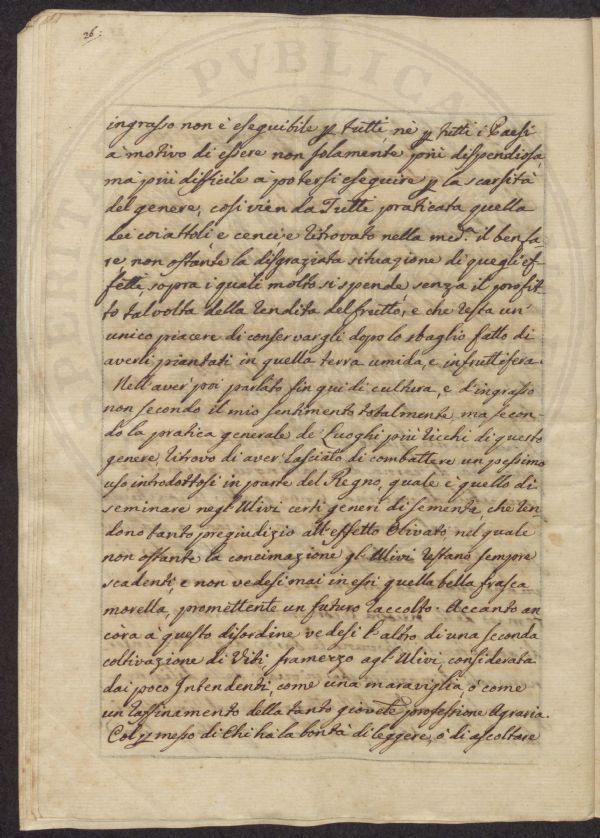 26:
PVBLICA
ingrasso non è eseguibile p tutti, nè p tutti i Paesi
à motivo di essere non solamente più dispendiosa,
mà più difficile à potersi eseguire p la scarsità
del genere, così vien da Tutti praticata quella
dei coiattoli, e cenci, e ritrovato nella med.ª il bensa-
re non ostante la disgraziata situazione di quegli ef-
fetti, sopra i quali molto si spende senza il profit-
to talvolta della rendita del frutto, e che resta un'
unico piacere di conservargli dopo lo sbaglio fatto di
averli piantati in quella terra umida, e infruttifera.
Nell'aver poi parlato fin qui di cultura, e d'ingrasso
non secondo il mio sentimento totalmente, ma secon-
do la pratica generale de' Luoghi più ricchi di questo
genere, ritrovo di aver lasciato di combattere un pessimo
uso introdottosi in parte del Regno, quale è quello di
seminare negl'Ulivi certi generi di sementa, che ren-
dono tanto pregiudizio all'effetto Olivato, nel quale
non ostante la concimazione gl'Ulivi restano sempre
scadenti, e non vedesi mai in essi quella bella frasca
morella, promettente un futuro raccolto. Accanto an-
còra à questo disordine vedesi l'altro di una seconda
coltivazione di Viti, framezzo agl'Ulivi, considerata
dai poco Intendenti, come una maraviglia, ò come
un raffinamento della tanto giovevole professione Agraria.
Col pmesso di chi ha la bontà di leggere, ò di ascoltare